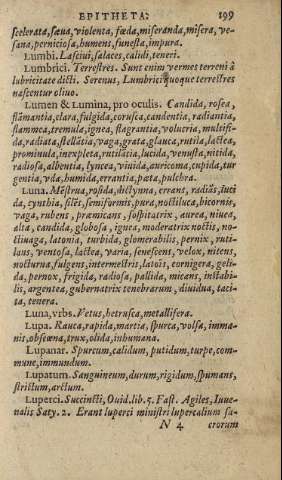 EPITHETA. 199
scelerata, sæua, violenta, fœda, miseranda, misera, ve-
sana, perniciosa, humens, funesta, impura.
Lumbi. Lasciui, salaces, calidi, teneri.
Lumbrici. Terrestres. Sunt enim vermes terreni à
lubricitate dicti. Serenus, Lumbrici quoque terrestres
nascentur oliuo.
Lumen & Lumina, pro oculis. Candida, rosea,
flāmantia, clara, fulgida, corusca, candentia, radiantia,
flammea, tremula, ignea, flagrantia, volucria, multifi-
da, radiata, stellātia, vaga, grata, glauca rutila, lactea,
prominula, inexpleta, rutilātia, lucida, venusta, nitida,
radiosa, albentia, lyncea, viuida, auricoma, cupida, tur
gentia, vda, humida, errantia, pæta, pulchra.
Luna. Mēstrua, rosida, dictynna, creans, radiās, luci
da, cynthia, silēs, semiformis, pura, noctiluca, bicornis,
vaga, rubens, præmicans, sospitatrix, aurea, niuea,
alta, candida, globosa, ignea, moderatrix noctis, no-
ctiuaga, latonia, turbida, glomerabilis, pernix, ruti-
laus, ventosa, lactea, varia, senescens, velox, nitens,
nocturna, fulgens, intermestris, latois, cornigera, geli-
da, pernox, frigida, radiosa, pallida, micans, instabi-
lis, argentea, gubernatrix tenebrarum, diuidua, taci-
ta, tenera.
Luna, vrbs. Vetus, hetrusca, metallifera.
Lupa. Rauca, rapida, martia, spurca, volsa, imma-
nis, obscœna, trux, olida, inhumana.
Lupanar. Spurcum, calidum, putidum, turpe, com-
mune, immundum.
Lupatum. Sanguineum, durum, rigidum, spumans,
strictum, arctum.
Luperci. Succincti, Ouid. lib. 5. Fast. Agiles, Iuue-
nalis Saty. 2. Erant luperci ministri lupercalium sa-
N 4 crorum